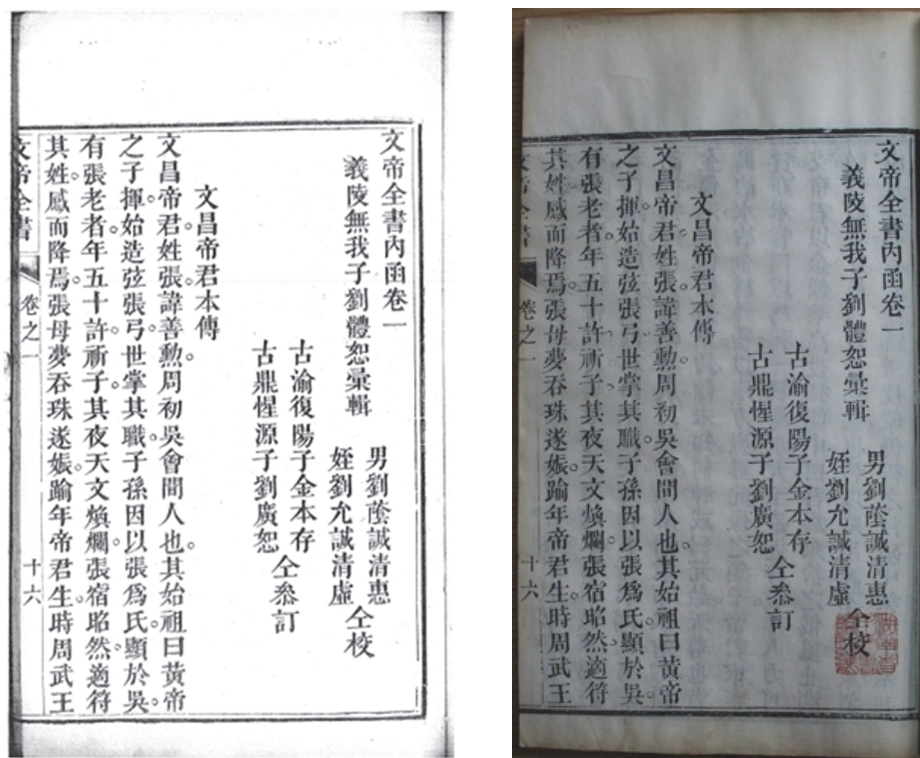 文帝全書內函卷一
義陵無我子劉體恕彙輯
男劉蔭誠清惠
姪劉允誠清虛
仝校
古渝復陽子金本存
古鼎惺源子劉廣恕
仝叅訂
文昌帝君本傳
文昌帝君姓張。諱善勲。周初吳會間人也。其始祖曰黃帝
之子揮。始造弦張弓。世掌其職。子孫因以張爲氏。顯於吳。
有張老者年五十許。祈子。其夜天文煥爛。張宿昭然。適符
其姓。感而降焉。張母夢吞珠遂娠。踰年帝君生。時周武王
文帝全書 卷之一 十六
文帝全書內函卷一
義陵無我子劉體恕彙輯
男劉蔭誠清惠
姪劉允誠清虛
仝校
古渝復陽子金本存
古鼎惺源子劉廣恕
仝叅訂
文昌帝君本傳
文昌帝君姓張。諱善勲。周初吳會間人也。其始祖曰黃帝
之子揮。始造弦張弓。世掌其職。子孫因以張爲氏。顯於吳。
有張老者年五十許。祈子。其夜天文煥爛。張宿昭然。適符
其姓。感而降焉。張母夢吞珠遂娠。踰年帝君生。時周武王
文帝全書 卷之一 十六